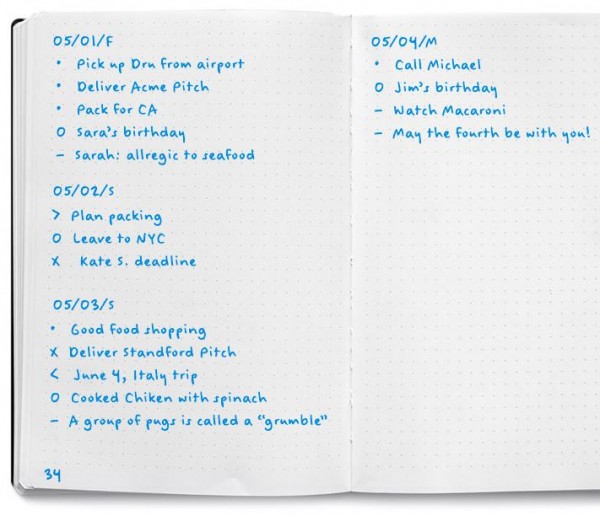 05/01/F
• Pick up Dru from airport
• Deliver Acme Pitch
• Pack for CA
O Sara's birthday
– Sarah: allregic to seafood
05/02/S
> Plan packing
O Leave to NYC
x Kate S. deadline
05/03/S
• Good food shopping
x Deliver Standford Pitch
< June 4, Italy trip
O Cooked Chiken with spinach
– A group of pugs is called a "grumble"
34
05/04/M
• Call Michael
O Jim's birthday
– Watch Macaroni
– May the fourth be with you!